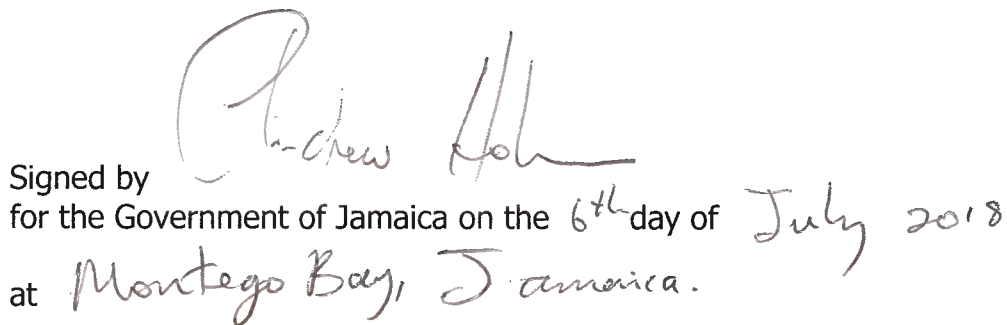 Signed by Andrew Hol
for the Government of Jamaica on the 6th day of July 2018
at Montego Bay, Jamaica.